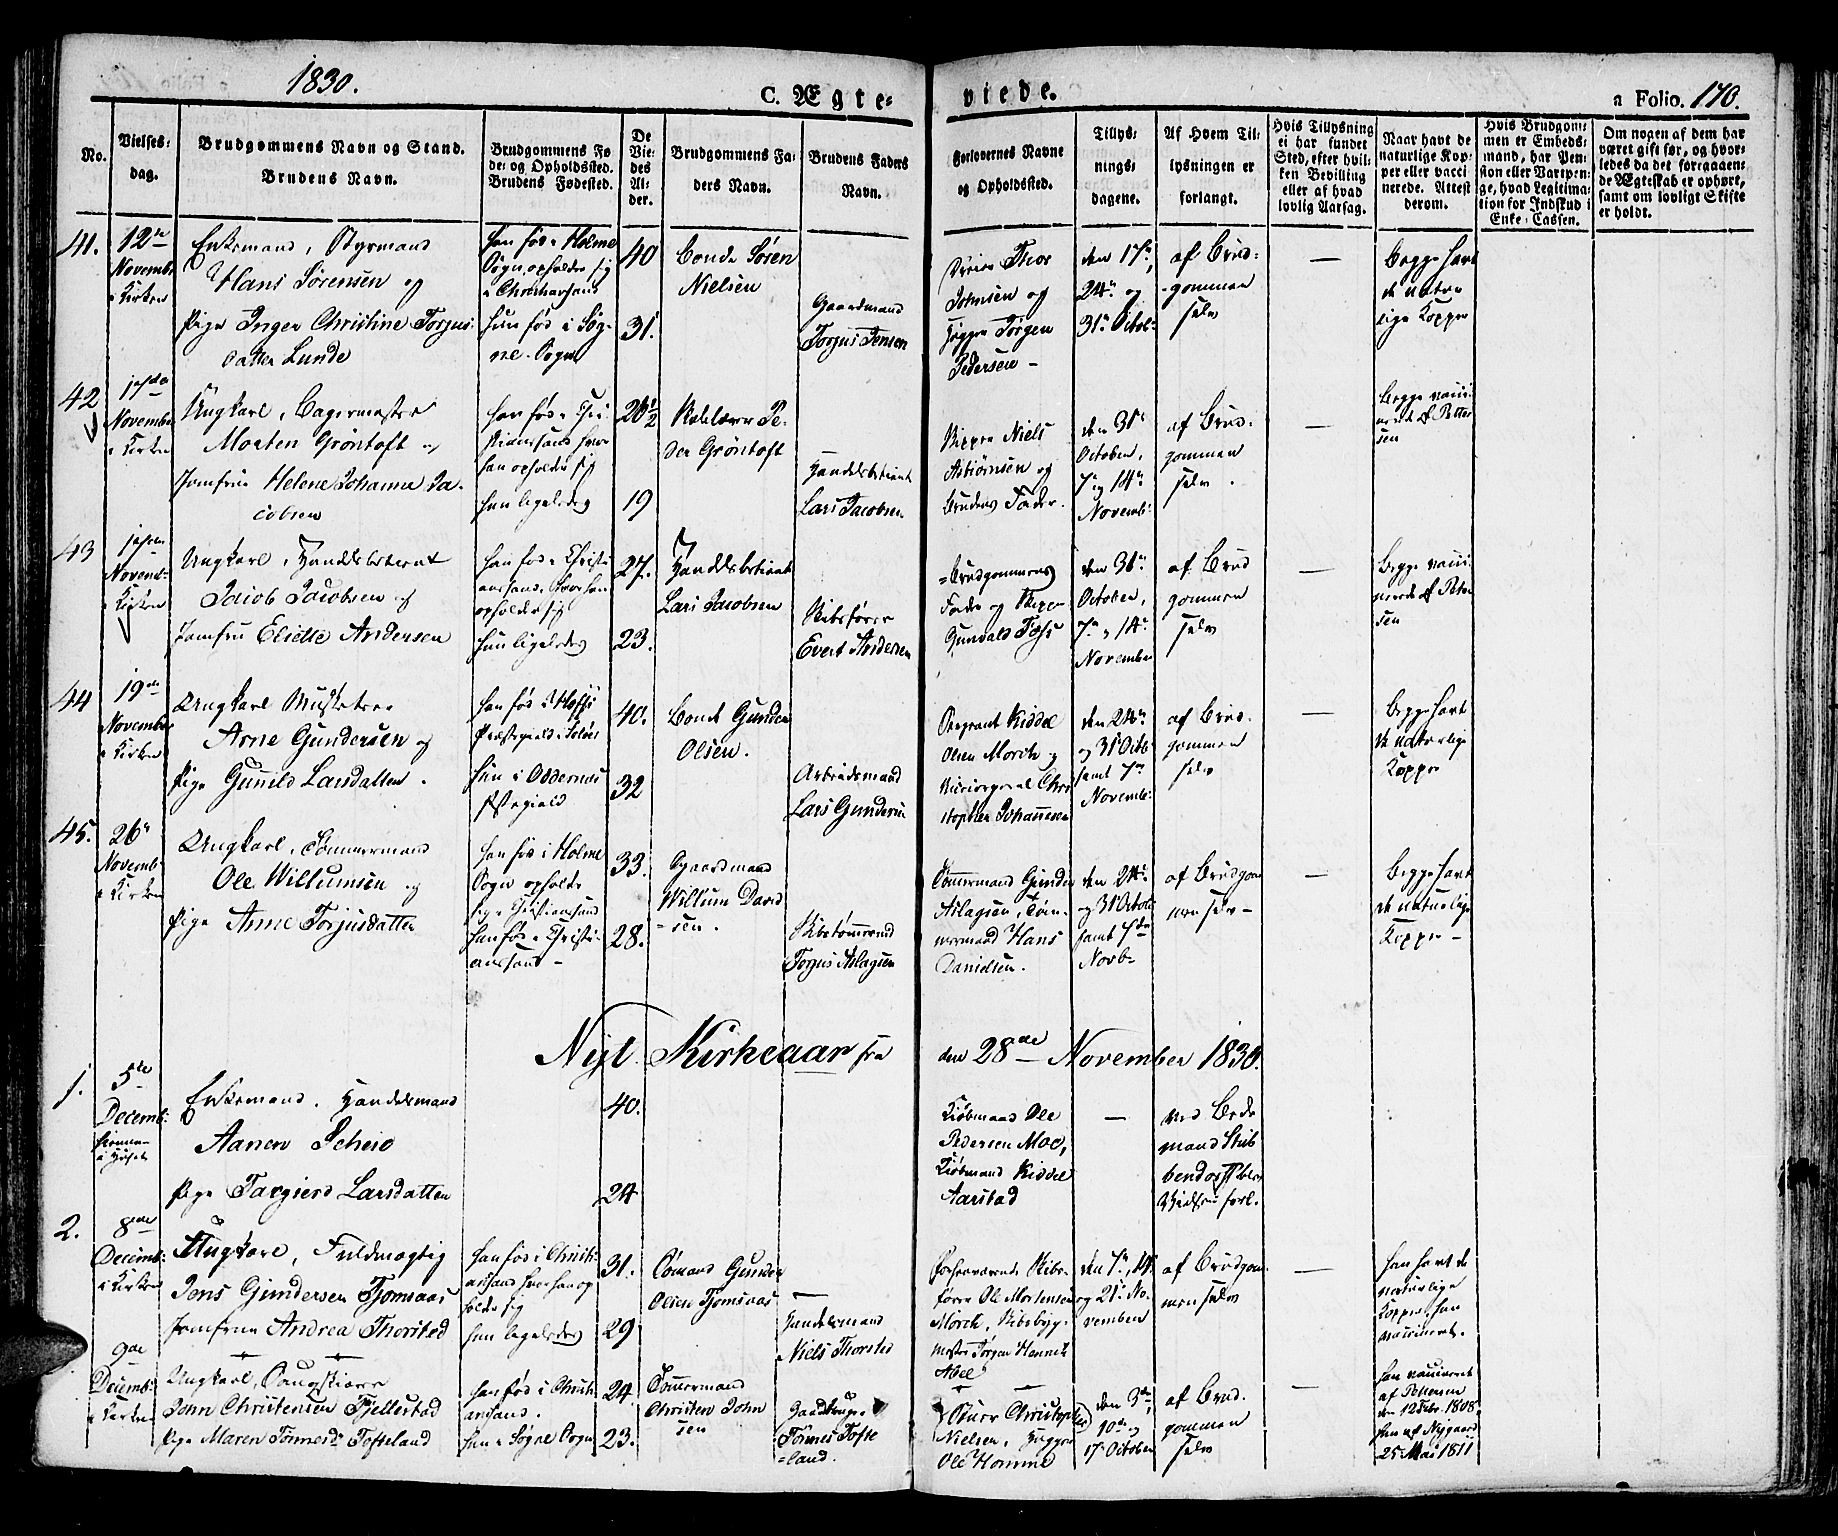 1830.
C. Ægte-
viede.
a Folio. 170.
No.
Vielses-
dag.
Brudgommens Navn og Stand.
Brudens Navn.
Brudgommens Fø
de- og Opholdssted.
Brudens Fødested.
De
Vie-
des
Al-
der.
Brudgommens Fa-
ders Navn.
Brudens Faders
Navn.
Forlovernes Navne
og Opholdssted.
Tillys-
nings-
dagene.
Af Hvem Til-
lysningen er
forlangt.
Hvis Tillysning
ei har fundet
Sted, efter hvil-
ken Bevilling
eller af hvad
lovlig Aarsag.
Naar havt de
naturlige Kop-
per eller vacci
nerede. Attest
derom.
Hvis Brudgom-
men er Embeds-
mand, har Pen-
sion eller Vartpen-
ge, hvad Legitima-
tion for Indskud i
Enke-Cassen.
Om nogen af dem har
været gift før, og hvor-
ledes da det foregaaen-
de Ægteskab er ophørt,
samt om lovligt Skifte
er holdt.
41.
12te
Novembr
i Kirken
Enkemand, Styrmand
Hans Sørensen og
Pige Inger Christine Torjus-
datter Lunde
han fød i Holme
Sogn, opholder sig
i Christiansand
hun fød i Søg-
ne-Sogn
40
31.
Bonde Søren
Nielsen
Gaardmand
Torjus Jensen
Thor
Johnsen og
Jørgen
Pedersen -
den 17de,
24de og
31te Octob:
af Brud-
gommen
selv
—
Begge havt
de natur
lige Kopper
42
17de
November
i Kirken
Ungkarl, Bagermester
Morten Grøntoft og
Jomfrue Helene Johanne Ja-
cobsen
han fød i Chri
stiansand hvor
han opholder sig
hun ligeledes
26½
19
Peder Grøntoft
Handelsbetient
Lars Jacobsen
Skipper Niels
Asbiørnsen og
Brudens Fader.
den 31te
October,
7de og 14de
Novemb:
af Brud-
gommen
selv.
—
Begge vacci
nerede af Petter
sen
43
Novemb:
i Kirken
Ungkarl, Handelsbetient
Jacob Jacobsen og
Jomfru Elisette Andersen
han fød i Christi
ansand, hvor han
opholder sig
hun ligeledes
27.
23.
Handelsbetient
Lars Jacobsen
Skibsfører
Evert Andersen
Brudgommens
Fader og Skipper
Gunvald
den 31te
October,
7de og 14de
November
af Brud
gommen
selv
—
Begge vacci
nerede af Peter
sen
44
19de
November
i Kirken
Ungkarl Musketeer
Arne Gundersen og
Pige Gunild Larsdatter.
han fød i Hoffs
Præstegield i Soløer
hun i Oddernes
Præstegield
40.
32
Bonde Gunder
Olsen.
Arbeidsmand
Lars Gundersen
Sergeant Kiddel
Olsen Morch og
Chri
stopher Johannesen
den 24de
og 31te Octob:
samt 7de
Novemb:
af Brud-
gommen
selv
—
Begge havt
de naturlige
Kopper
45.
26de
Novemb:
i Kirken
Ungkarl, Tømmermand
Ole Willumsen og
Pige Anne Torjusdatter
han fød i Holme
Sogn opholder
sig i Christiansand
hun fød i Christi-
ansand -
33.
28.
Gaardmand
Willum David
-sen.
Skibstømmermand
Torjus Aslagsen
Tømmermand Gunder
Aslagsen, Tøm-
mermand Hans
Danielsen.
den 24de
og 31te Octob:
samt 7de
Novb-
af Brudgom
men selv -
—
Begge havt
de naturlige
Kopper -
Nyt Kirkeaar fra
den 28de November 1830.
1.
5te
Decemb:
hiemme
i Huset
Enkemand, Handelsmand
Aanen Scheie
Pige Targierd Larsdatter
40.
24
Kiøbmand Ole
Pedersen Moe,
Kiøbmand Kiddel
Aarstad
—
2.
8de
Decemb:
i Kirken
Ungkarl, Fuldmægtig
Jens Gundersen Tjomsaas
Jomfrue Andrea Thorsted
han fød i Christi-
ansand hvor han op
holder sig
hun ligeledes
31.
29
Gunder
Olsen Tjomsaas
Handelsmand
Niels Thorsted
Forhenværende Skibs-
fører Ole Mortensen
Morch, Skibsbyg-
mester Jørgen Henrik
Abel
den 7de, 14de
og 21de No-
vember
af Brudgom-
men selv
—
han havt de
naturlige
Kopper, hun
vaccineret.
9de
Decemb:
i Kirken
Ungkarl,
John Christensen Fjellestad
Pige Maren Tørresdr Tofteland
han fød i Christi-
ansand.
hun i Søgne Sogn
24.
23.
Tømmermand
Christen John
sen
Gaardbruger
Tørres Tofte
-land.
Christopher
Nielsen,
Ole Homme
den 3die,
10de og
17de October
af Brud-
gommen
selv
—
han vaccineret
af Petersen
den 12 Febr. 1808
hun af Nygaard
25 Mai 1811